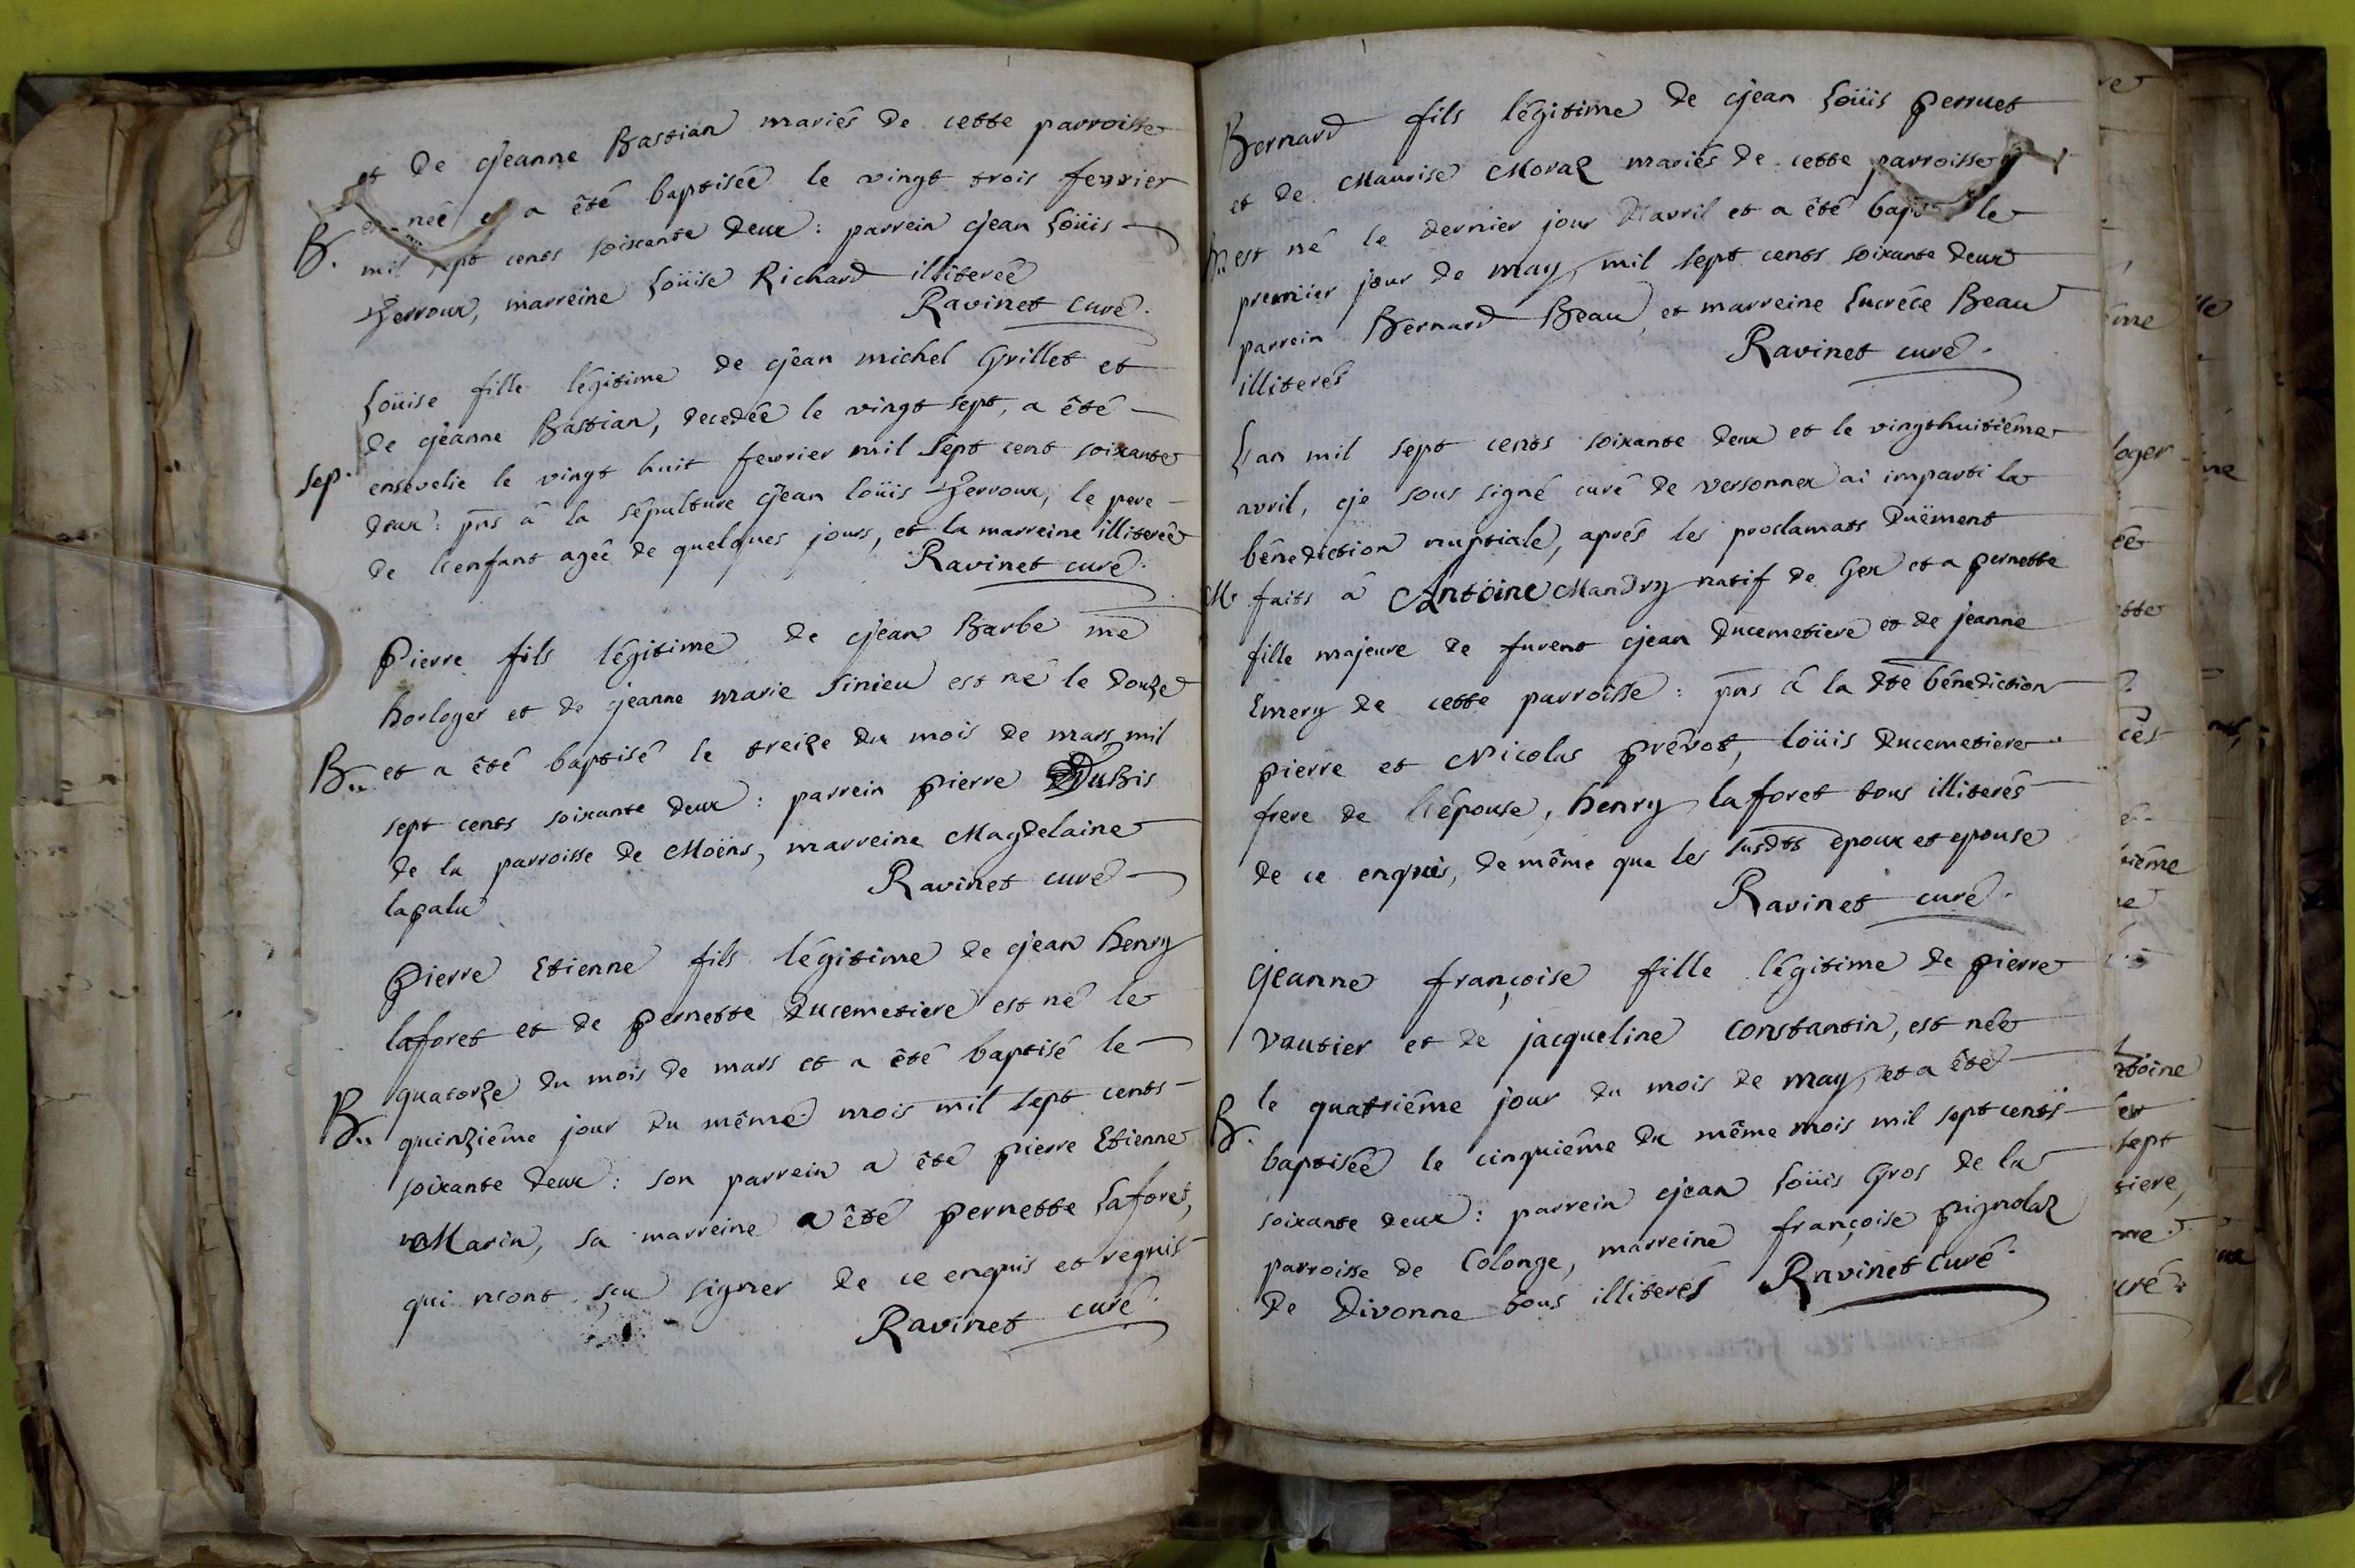 et de Jeanne Bastian mariés de cette parroisse
est neé et a été baptisée le vingt trois fevrier
B. mil sept cents soixante deux : parrein Jean Loüis
Perroux, marreine Loüise Richard illitereé
Ravinet curé.
Loüise fille légitime de Jean michel Grillet et
de Jeanne Bastian, decedée le vingt sept, a été
Sep. ensevelie le vingt huit fevrier mil sept cent soixante
deux : pns à la sépulture Jean loüis Perroux, le pere
de l'enfant ageé de quelques jours, et la marreine illitereé
Ravinet curé.
Pierre fils légitime de Jean Barbe me
horloger et de Jeanne marie Sinieu est né le douze
B.. et a été baptisé le treize du mois de mars mil
sept cents soixante deux : parrein pierre DuBis
de la parroisse de Moëns, marreine Magdelaine
lapalu
Ravinet curé
Pierre Etienne fils légitime de Jean henry
laforet et de pernette Ducemetiere est né le
quatorze du mois de mars et a été baptisé le
B.. quinzième jour du même mois mil sept cents
soixante deux : son parrein a été pierre Etienne
Marin, sa marreine a été pernette Laforet,
qui n'ont sçu signer de ce enquis et requis
Ravinet curé.
Bernard fils légitime de Jean Loüis perruet
et de Maurise Moraz mariés de cette parroisse
B.. est né le dernier jour d'avril et a été le
premier jour de may, mil sept cents soixante deux
parrein Bernard Beau, et marreine Lucréce Beau
illiterés
Ravinet curé.
L'an mil sept cents soixante deux et le vingthuitième
avril, je sous signé curé de versonnex ai imparti la
bénediction nuptiale, aprés les proclamats duëment
M. faits à Antoine Mandry natif de Gex et a pernette
fille majeure de furent Jean Ducemetiere et de jeanne
Emery de cette parroisse : pns à la dte bénediction
pierre et Nicolas prévot, loüis Ducemetiere
frere de l'épouse, henry laforet tous illiterés
de ce enquis, de même que les susdts epoux et epouse
Ravinet curé.
Jeanne françoise fille légitime de pierre
Vautier et de jacqueline constantin, est née
le quatrième jour du mois de may, et a été
B. baptiseé le cinquième du même mois mil sept cents
soixante deux : parrein Jean Loüis Gros de la
parroisse de Colonge, marreine françoise pignolaz
de Divonne tous illiterés
Ravinet curé.